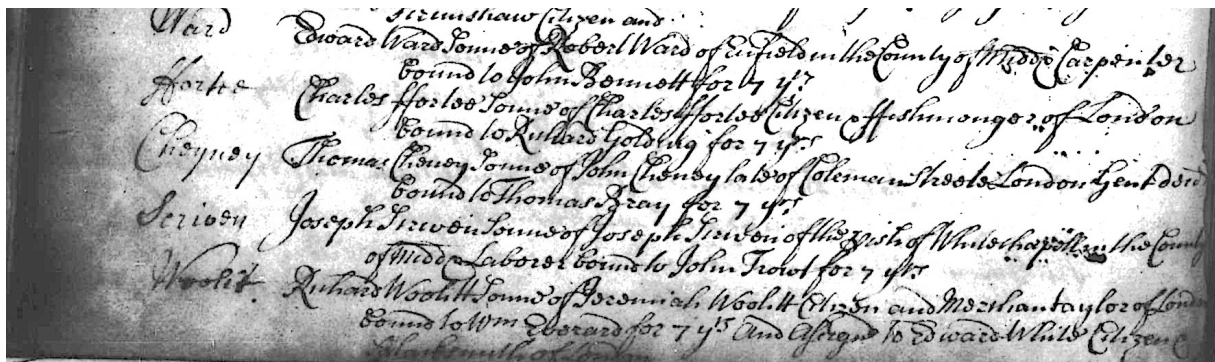 Scrimshaw Citizen and
Ward Edward Ward Sonne of Robert Ward of Enfield in the County of Middx Carpenter
bound to John Bennett for 7 yrs
ffortee Charles ffortee Sonne of Charles ffortee Citizen & ffishmonger of London
bound to Richard Golding for 7 yrs
Cheyney Thomas Cheney Sonne of John Cheney late of Coleman Streete London Gent decd
bound to Thomas Bray for 7 yrs
Scriven Joseph Scriven Sonne of Joseph Scriven of the pish of Whitechapell in the County
of Middx Laborer bound to John Trowt for 7 yrs
Woolit Richard Woolitt Sonne of Jeremiah Woolitt Citizen and Merchantaylor of London
bound to Wm Everard for 7 yrs And Assigne to Edward White Citizen &
blacksmith of London